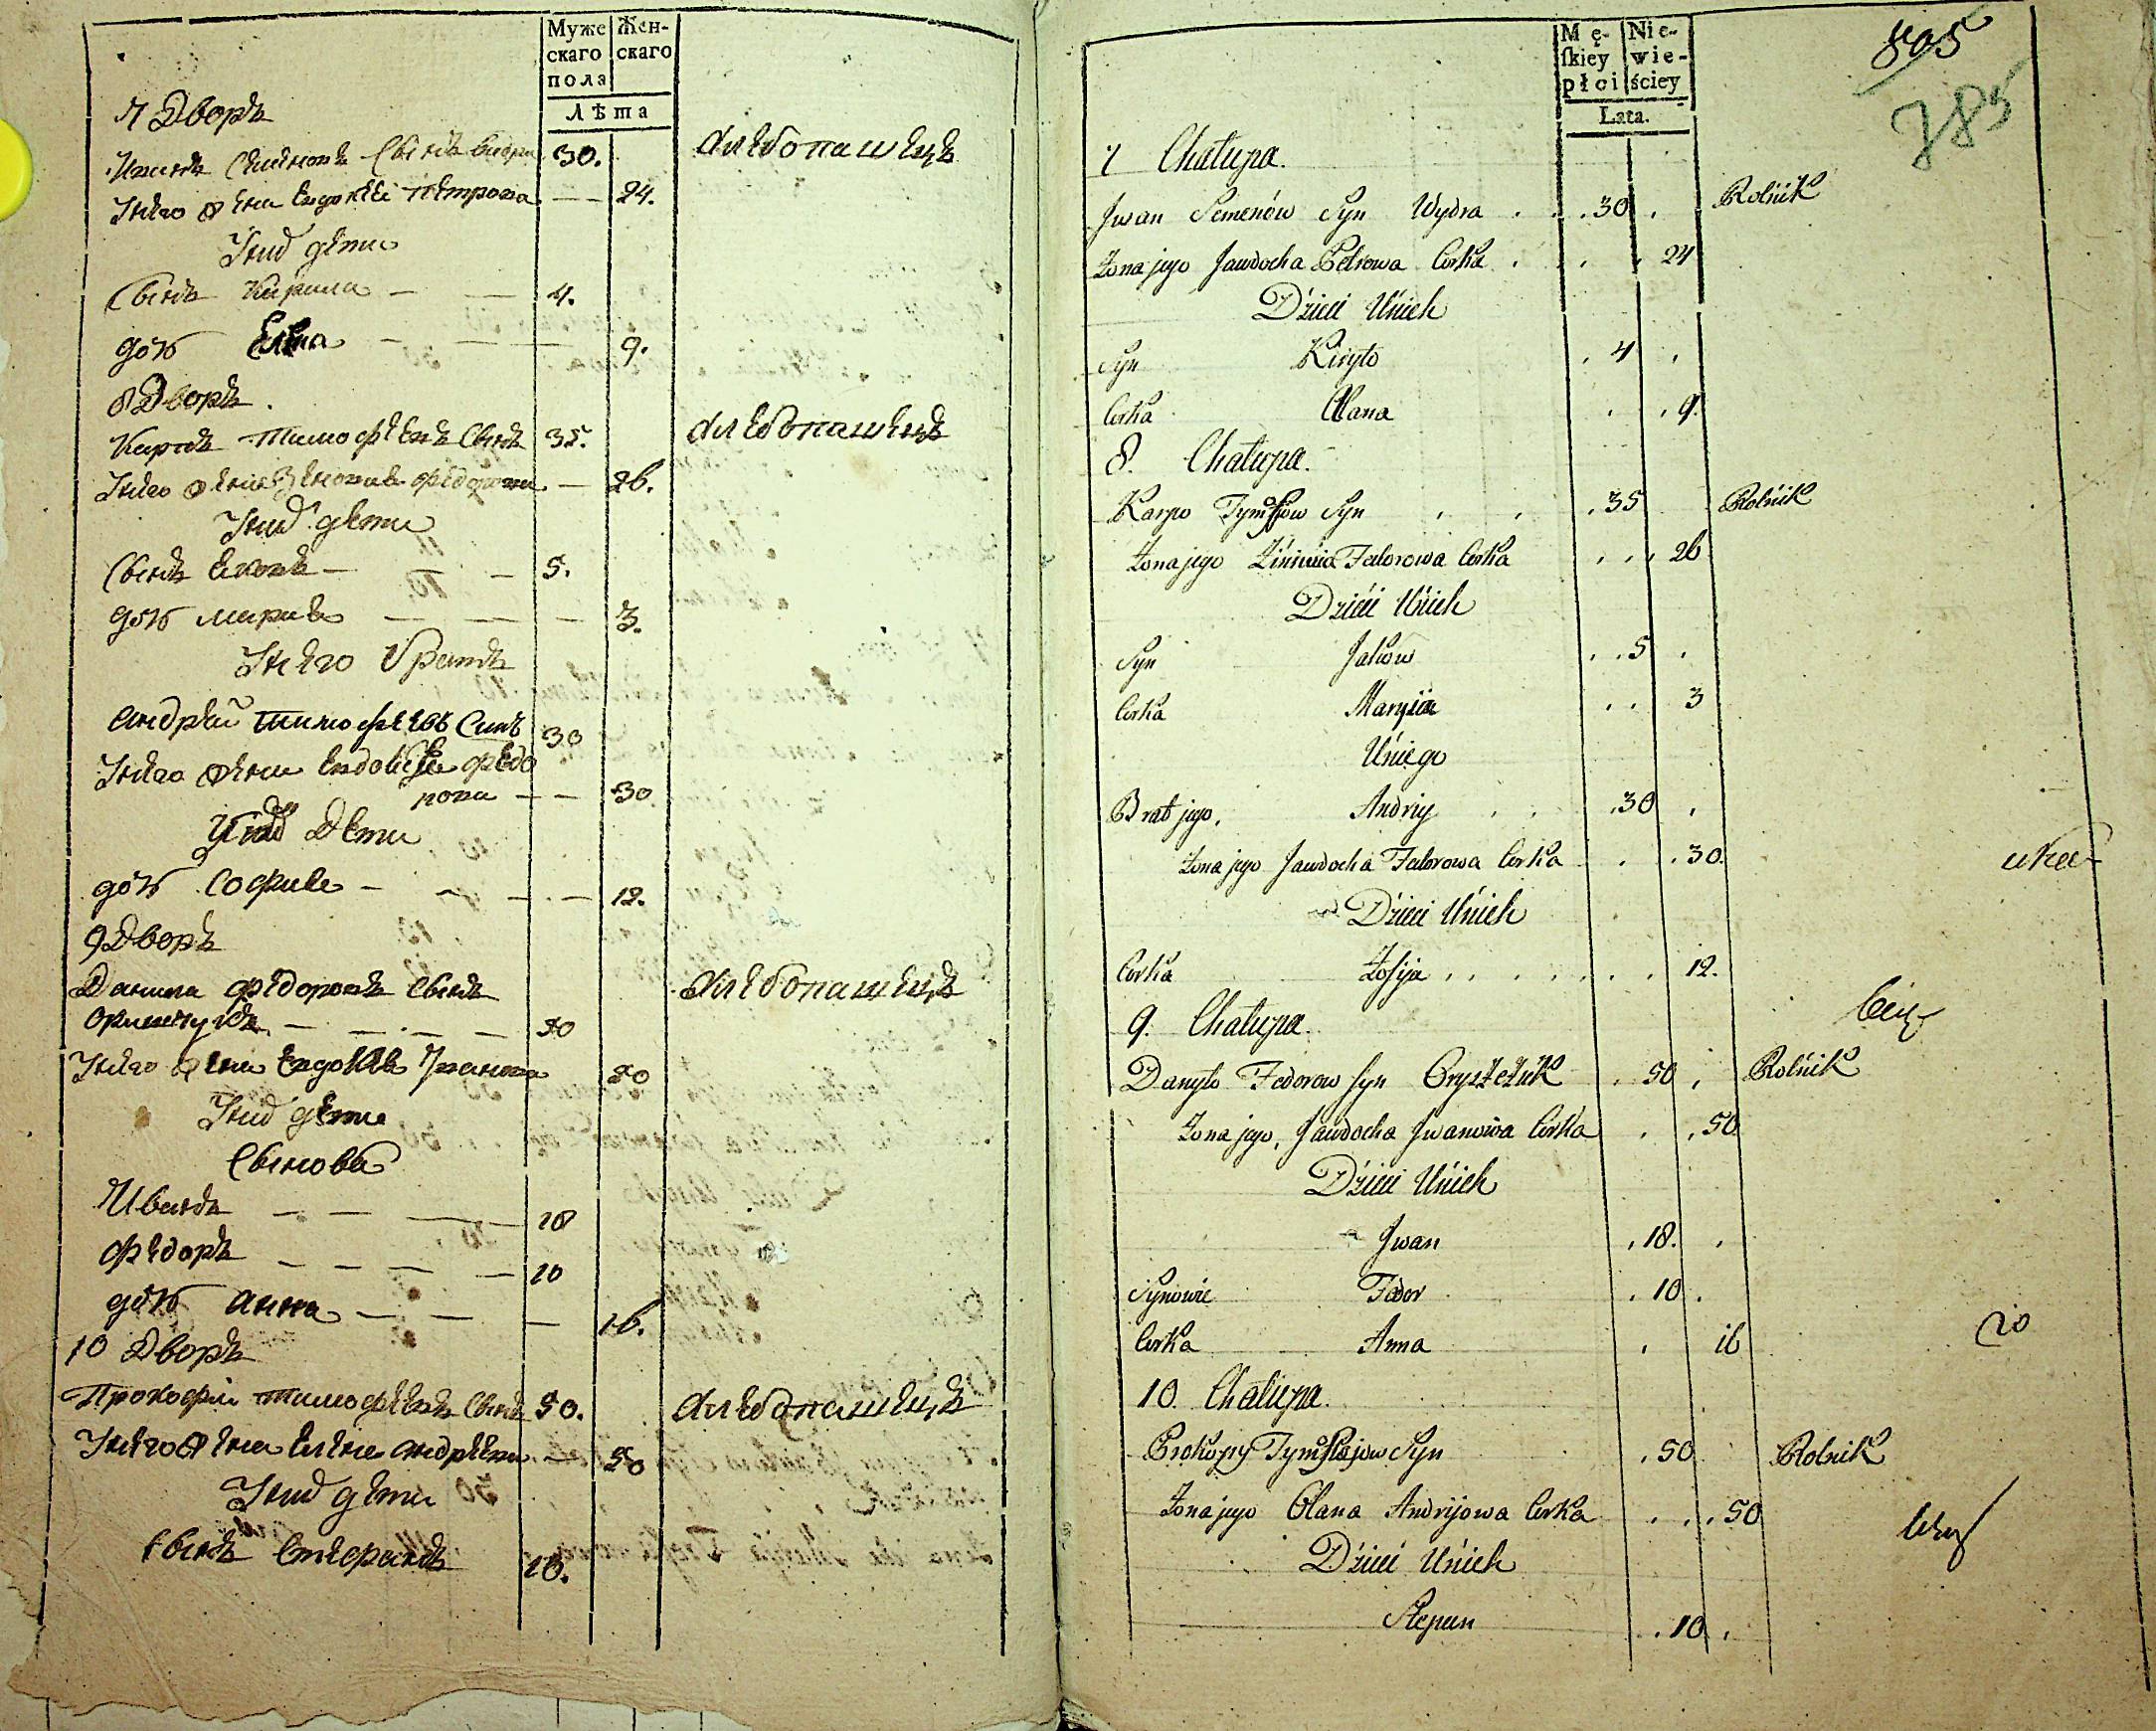 Муже
скаго
пола
Жен-
скаго
Лѣта
7 Дворъ
Иванъ Семеновъ Сынъ Видра 30. Хлебопашецъ
Унего жена Евдокия Петрова — — 24.
Уних дети
Сынъ Кирила — — 4.
дочъ Елена — — 9.
8 Дворъ.
Карпъ Тимофеевъ Сынъ 35. Хлебопашецъ
Унего жена Зеновия Федорова — 26.
Уних дети
Сынъ Яковъ — — 5.
дочъ Мария — — — 3.
Унего Братъ
Андрей Тимофеевъ Синъ 30
Унего жена Евдокия Федо
рова — — 30
Уних Дети
дочъ София — — — — 12.
9 Дворъ
Данила Федоровъ Сынъ Хлебопашецъ
— — — — 50
Унего жена Евдокия Иванова 50
Уних дети
Сыновья
Иванъ — — — 18
Федоръ — — — — 10
дочъ Анна — — — 16.
10 Дворъ
Прокофий Тимофеевъ Сынъ 50. Хлебопашецъ
Унего жена Елена Андреева — 50
Уних дети
Сынъ Степанъ 10.
Mę-
ſkiey
płci
Nie-
wie-
ściey
Lata.
805
785
7 Chałupa.
Jwan Semenów Syn Wydra . . . 30 . Rolńik
Żona jego Jawdocha Petrowa Corka . . . 24
Dzieci Uńich
Syn Kiryło . 4 .
Corka Olana . . 9.
8. Chałupa.
Karpo Tymofiow Syn . . . 35 Rolńik
Żona jego Ziniwia Fedorowa Corka . . . 26
Dzieci Uńich
Syn Jakow . . 5 .
Corka Maryia . . 3
Uńiego
Brat jego, Andriy . . . 30 .
Żona jego Jawdocha Fedorowa Corka . . 30.
Dzieci Uńich
Corka Zofija . . . . . . 12.
9. Chałupa.
Danyło Fedorow Syn Oryszczuk . 50 . Rolńik
Żona jego, Jawdocha Jwanowa Corka . . 50
Dzieci Uńich
Jwan . 18. .
Synowie Fedor . 10 .
Corka Anna . 16
10. Chałupa.
Prokopy Tymofiejow Syn . 50 Rolnik
Żona jego Olana Andrijowa Corka . . . 50
Dzieci Uńich
Stepan . 10 .